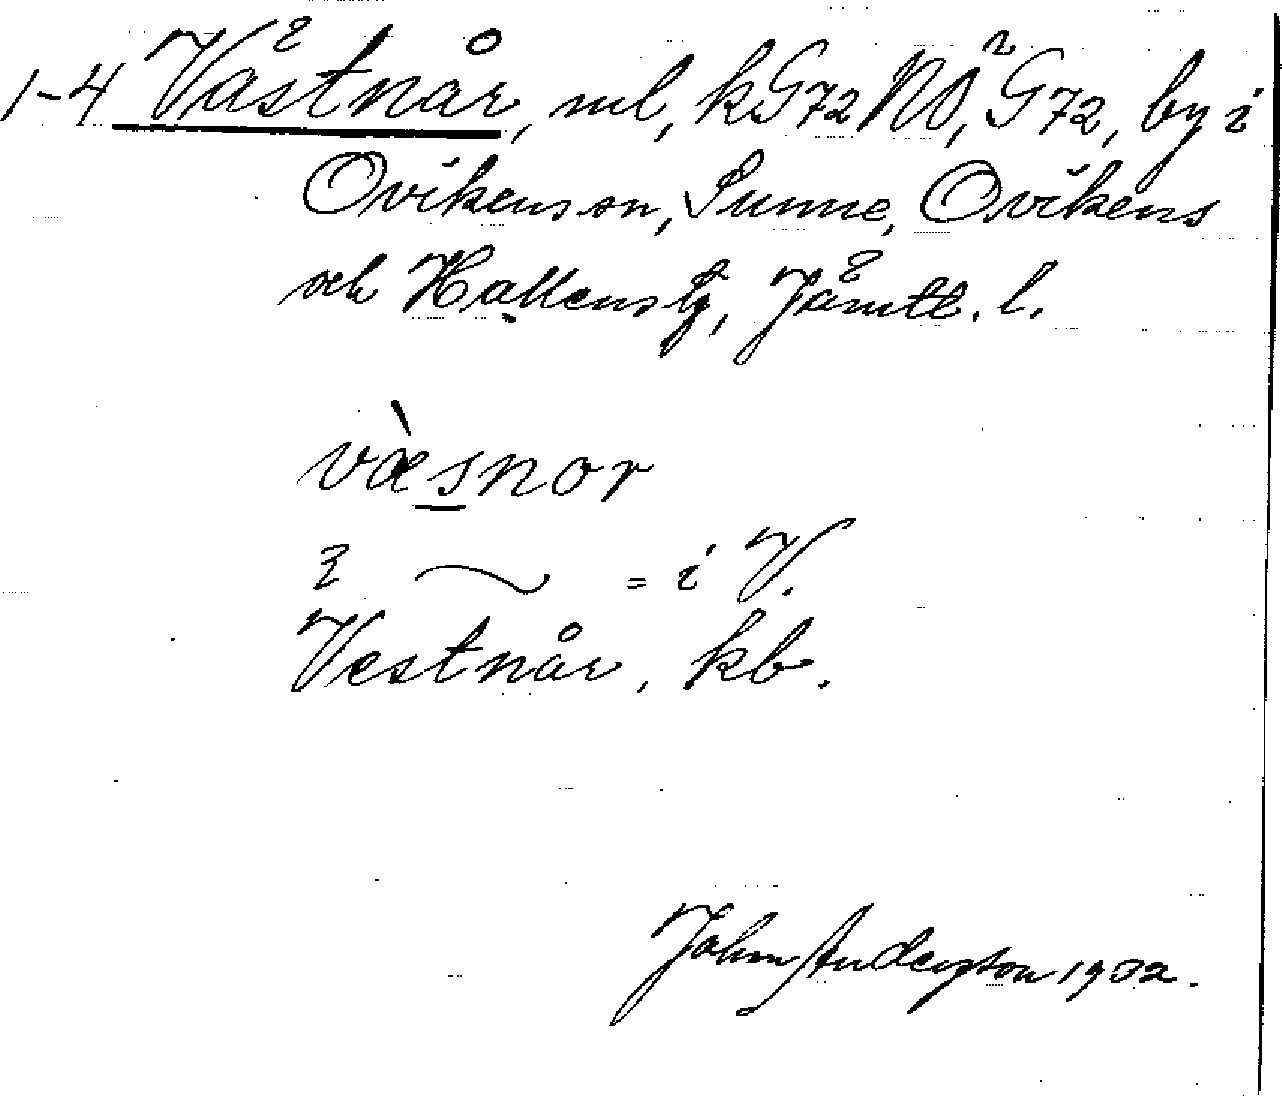 1-4 Västnår, ml, kG72NV, G72, by i
Ovikens sn, Sunne, Ovikens
och Hallens tg, Jämtl. l.
væ̀snor
i ~ = i V.
Vestnår, kb.
John Anderson 1902.